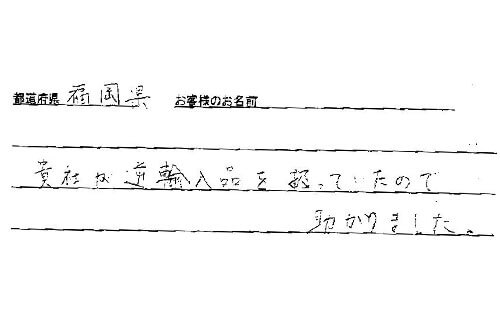 都道府県 福岡県 お客様のお名前
貴社が逆輸入品を扱っていたので
助かりました。